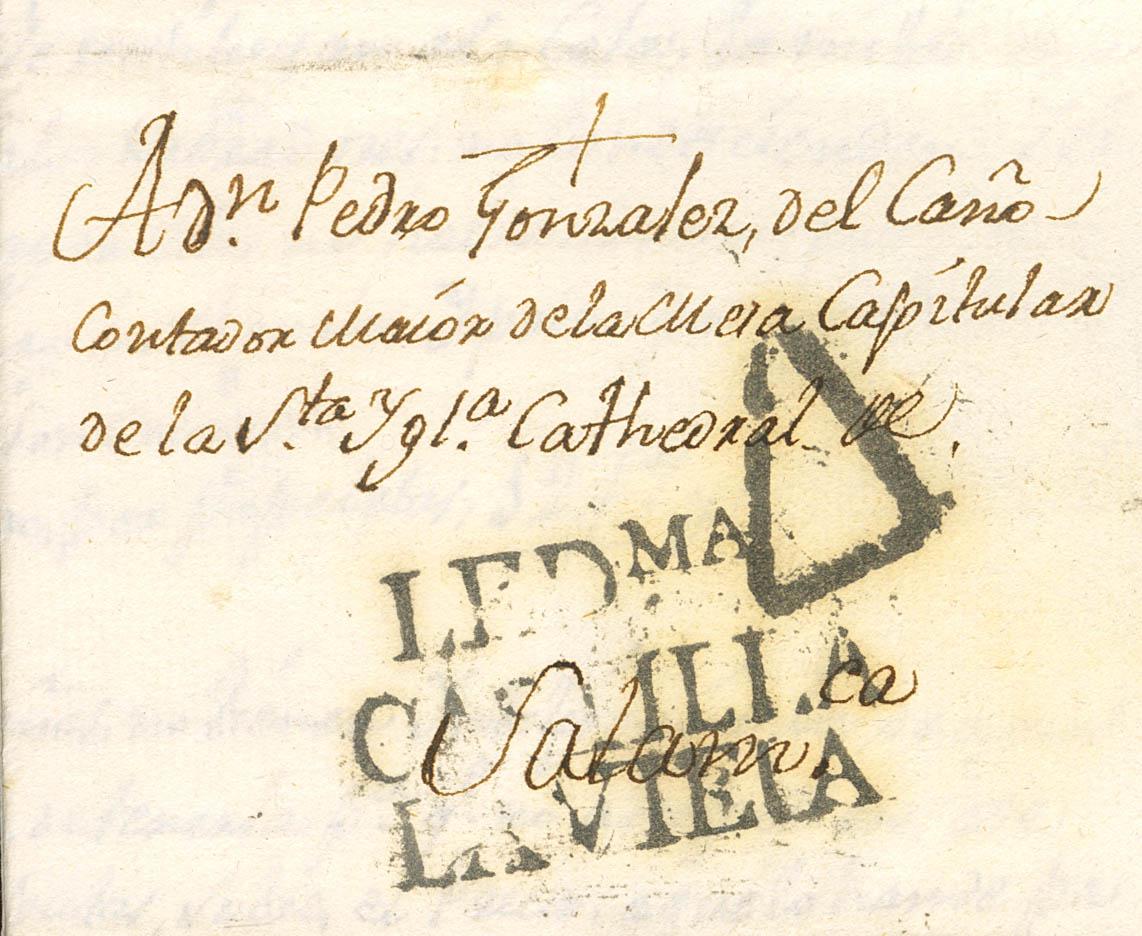 A dn. Pedro Gonzalez, del Caño
Contador Maior de la Mesa Capitular
de la S.ta Ygl.a Cathedral de.
LEDMA
CASTILLA
Salam.ca
LAVIEIA